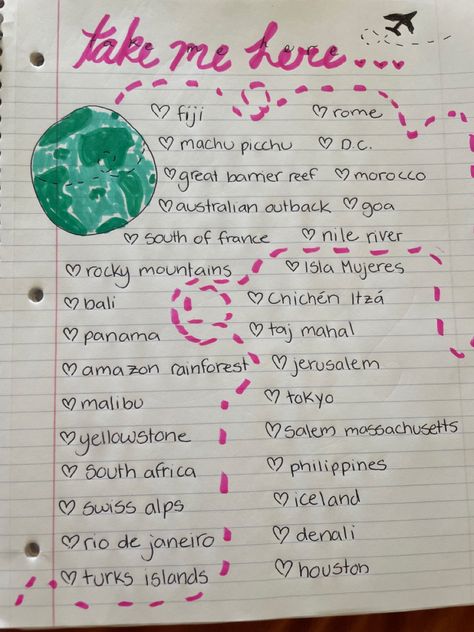 take me here...
♡ fiji ♡ rome
♡ machu picchu ♡ D.C.
♡ great barrier reef ♡ morocco
♡ australian outback ♡ goa
♡ south of france ♡ nile river
♡ rocky mountains ♡ Isla Mujeres
♡ bali ♡ Chichén Itzá
♡ panama ♡ taj mahal
♡ amazon rainforest ♡ jerusalem
♡ malibu ♡ tokyo
♡ yellowstone ♡ salem massachusetts
♡ south africa ♡ philippines
♡ swiss alps ♡ iceland
♡ rio de janeiro ♡ denali
♡ turks islands ♡ houston